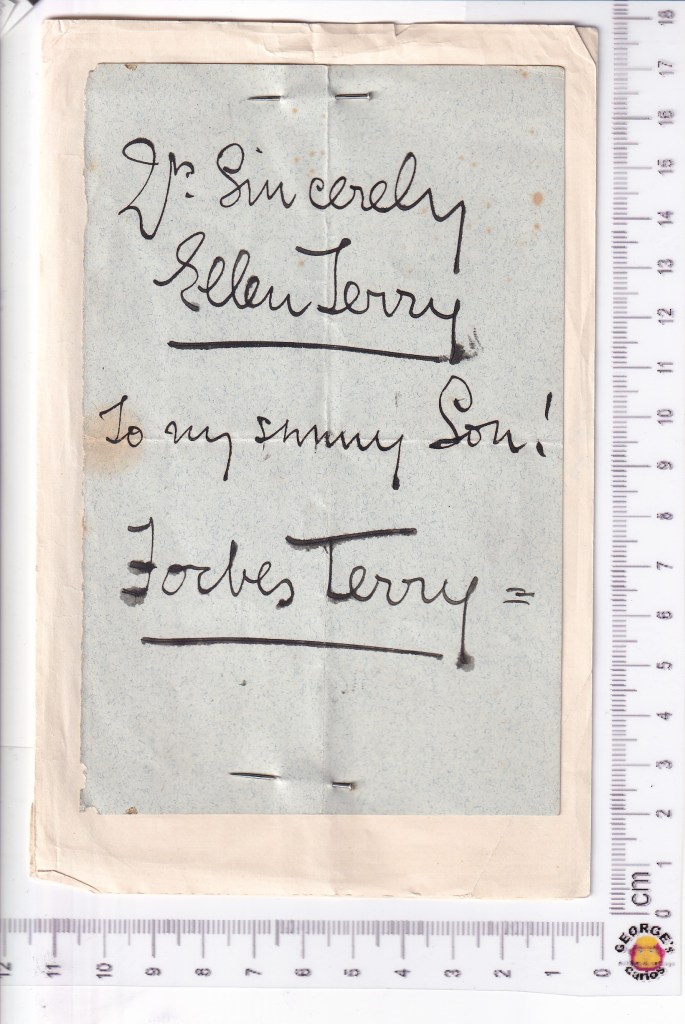 Yrs. Sincerely
Ellen Terry
To my sunny Son!
Forbes Terry =
18
17
16
15
14
13
12
11
10
9
8
7
6
5
4
3
2
1
0
cm
12 11 10 9 8 7 6 5 4 3 2 1 0
GEORGE's
curios